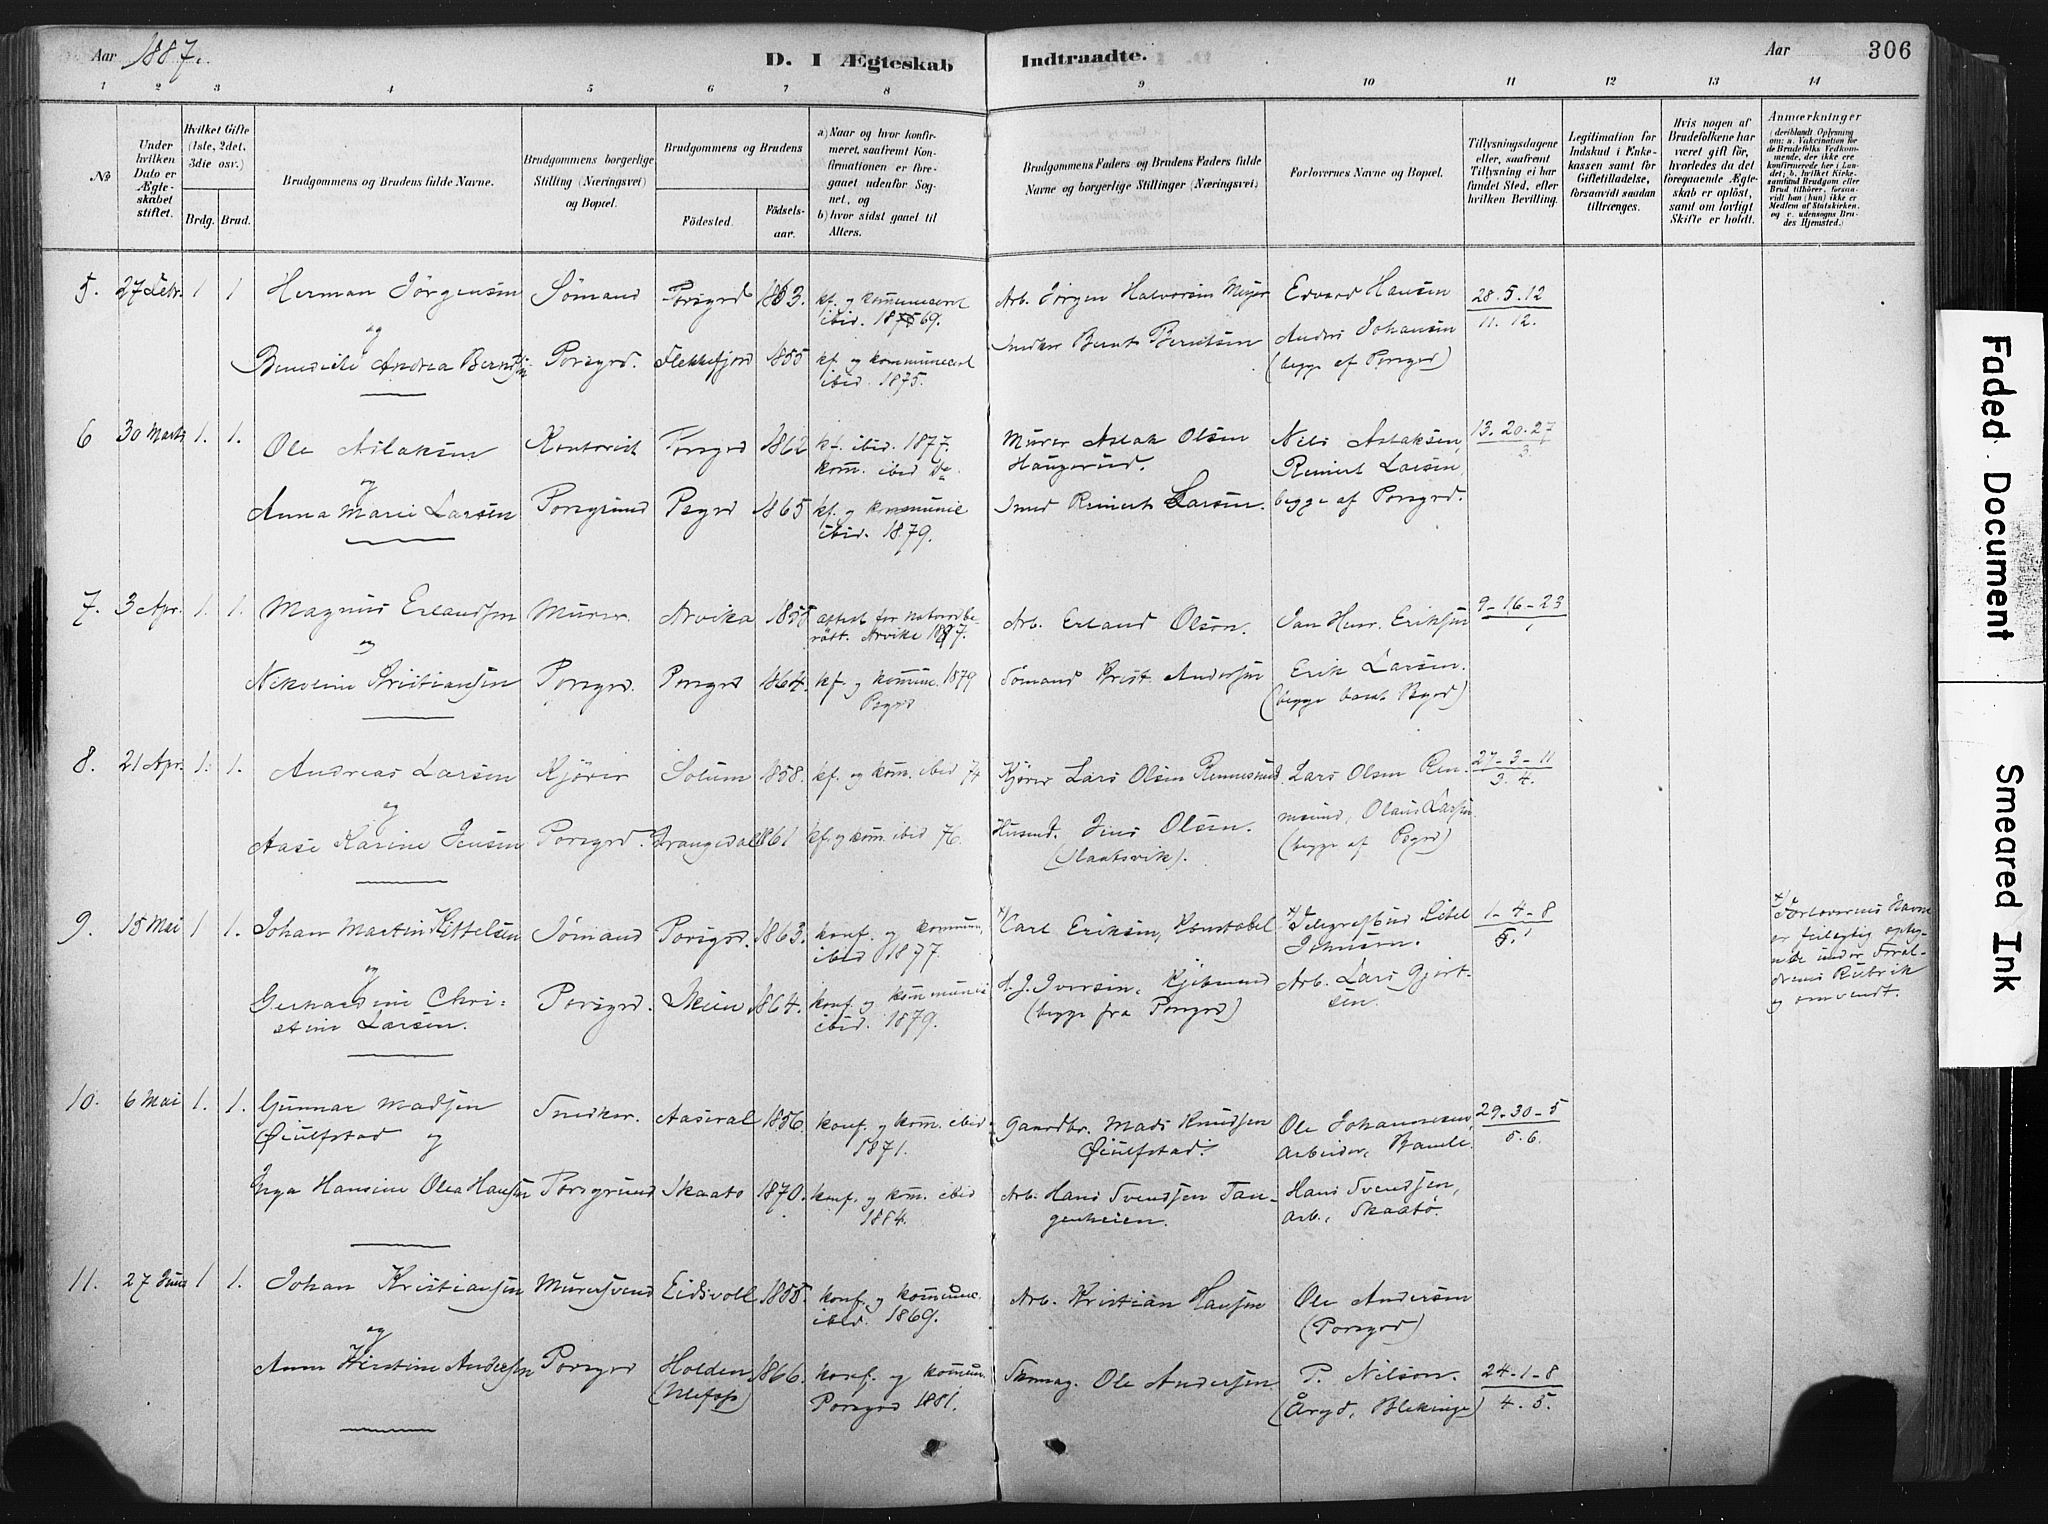 Aar 1887.
D. I Ægteskab Indtraadte.
Aar
306
1 2 3 4 5 6 7 8 9 10 11 12 13 14
No
Under hvilken Dato er Ægteskabet stiftet.
Hvilket Gifte (1ste, 2det, 3die osv.)
Brdg. Brud.
Brudgommens og Brudens fulde Navne.
Brudgommens borgerlige Stilling (Næringsvei) og Bopæl.
Brudgommens og Brudens
Fødested.
Fødselsaar.
a) Naar og hvor konfirmeret, saafremt Konfirmationen er foregaaet udenfor Sognet, og
b) hvor sidst gaaet til Alters.
Brudgommens Faders og Brudens Faders fulde Navne og borgerlige Stillinger (Næringsvei)
Forlovernes Navne og Bopæl.
Tillysningsdagene eller, saafremt Tillysning ei har fundet Sted, efter hvilken Bevilling.
Legitimation for Indskud i Enkekassen samt for Giftetilladelse, forsaavidt saadan tiltrænges.
Hvis nogen af Brudefolkene har været gift før, hvorledes da det foregaaende Ægteskab er opløst, samt om lovligt Skifte er holdt.
Anmærkninger
(deriblandt Oplysning om: a. Vakcination for de Brudefolks Vedkommende, der ikke ere konfirmerede her i Landet; b. hvilket Kirkesamfund Brudgom eller Brud tilhører, forsaavidt han (hun) ikke er Medlem af Statskirken, og c. udensogns Brudes Hjemsted.)
5. 27 Febr. 1 1 Herman Jörgensen Sömand Porsgrd 1853. kf. og kommuniceret Arb. Jörgen Halvorsen Meyer Edvard Hansen 28.5.12
og ibid. 1869. Anders Johansen 11. 12.
Benedicte Andrea Berndsen Porsgrd. Flekkefjord 1855 kf. og kommuniceret Snedker Bernt Berntsen (begge af Porsgrd)
ibid. 1875.
6 30 Marts 1. 1. Ole Aslaksen Kontorist Porsgrd 1862 kf. ibid. 1877. Murer Aslak Olsen Nils Aslaksen, 13. 20. 27
og komm. ibid Do. Haugerud. Reinert Larsen, 3
Anna Marie Larsen Porsgrund Psgrd 1865 kf. og kommunic Smed Reinert Larsen. begge af Porsgrd.
ibid. 1879.
7. 3 Apr. 1. 1. Magnus Erlandsen Murer. Arvika 1855 attest for nattvardbe- Arb. Erland Olson. Jan Henr. Eriksen 9-16-23
og rätt. Arvika 1887. 1
Nikoline Kristiansen Porsgrd. Porsgrd 1864. kf. og kommun. 1879 Sömand Krist. Andersen Erik Larsen.
Psgrd
8. 21 Apr. 1. 1. Andreas Larsen Kjörer Solum 1858. kf. og kom. ibid 74 Kjörer Lars Olsen Rennesund. Lars Olsen Ren- 27-3-11
og nesund, Olaus Larsen 3. 4.
Aase Karine Jensen Porsgrd. Drangedal 1861 kf. og kom. ibid 76. Husmd. Jens Olsen. (begge af Psgrd)
(Slaatsvik).
9. 15 Mai 1 1. Johan Martin Kittelsen Sömand Porsgrd. 1863. konf. og kommun. x/ Carl Eriksen, Konstabel x/ Telegrafbud Kittel 1-4-8
og ibid 1877. Johnsen. 5.
Gerhardine Chri- Porsgrd. Skien 1864. konf. og kommunic A. J. Iversen, Kjöbmand Arb. Lars Gjert-
stine Larsen. ibid. 1879. (begge fra Porsgrd) sen.
x/ Forlovernes Navne
er feilagtig opteg-
nede under Foræl-
drenes Rubrik
og omvendt.
10. 6 Mai 1. 1. Gunnar Madsen Snedker. Aaseral 1856. konf. og kom. ibid Gaardbr. Mads Knudsen Ole Johannesen, 29-30-5
Öiulfstad og 1871. Öiulfstad. Arbeider, Bamle. 5.6.
Inga Hansine Olea Hansen Porsgrund Skaatö 1870. konf. og kom. ibid Arb. Hans Svendsen Tan- Hans Svendsen,
1884. genheien. arb., Skaatö.
11. 27 Juni 1 1. Johan Kristiansen Murersvend Eidsvoll 1855. konf. og kommunc. Arb. Kristian Hansen Ole Andersen
og ibid. 1869. (Porsgrd)
Anne Kirstine Andersen Porsgrd Holden 1866. konf. og kommun. Skomag. Ole Andersen P. Nilson. 24-1-8
(Ulefos) Porsgrd 1881. (Åryd, Blekinge) 4. 5.
Faded Document
Smeared Ink